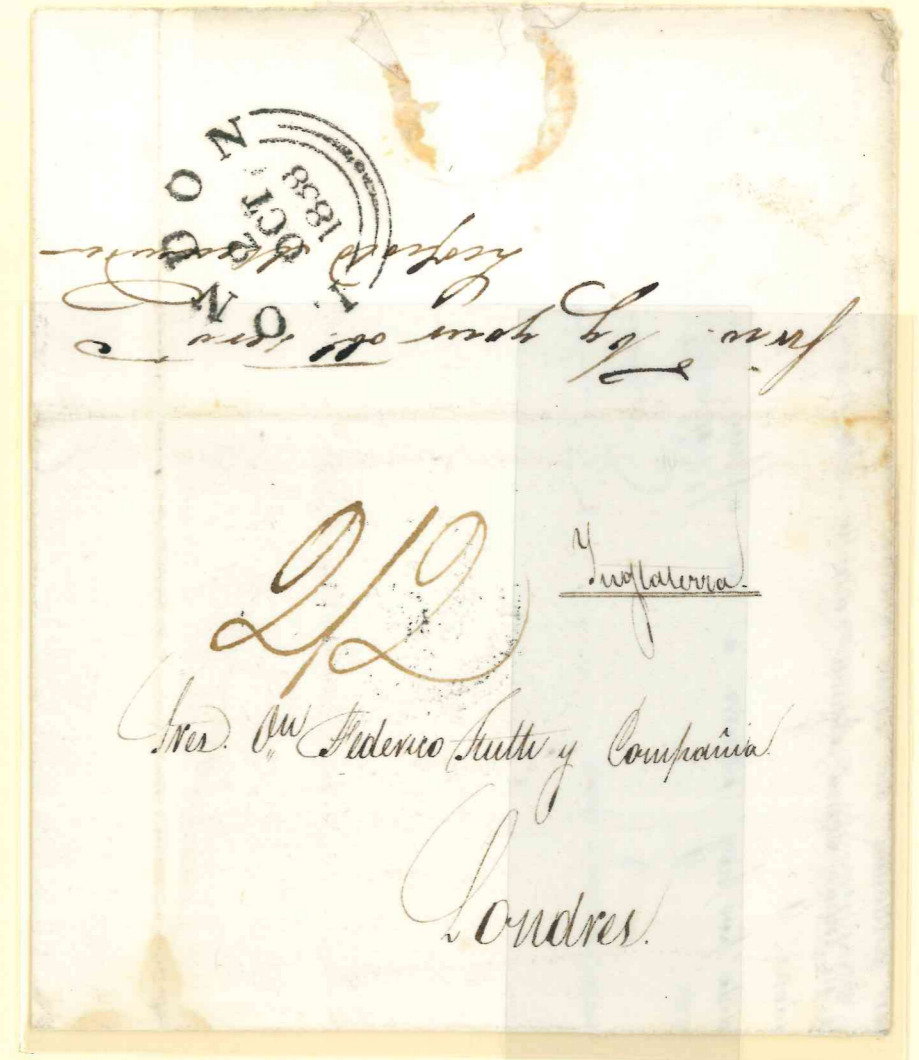 LONDON
OCT
1838
by your ob. serv
2/2
Ynglaterra.
Sres. Dn Federico Huth y Compañia.
Londres.